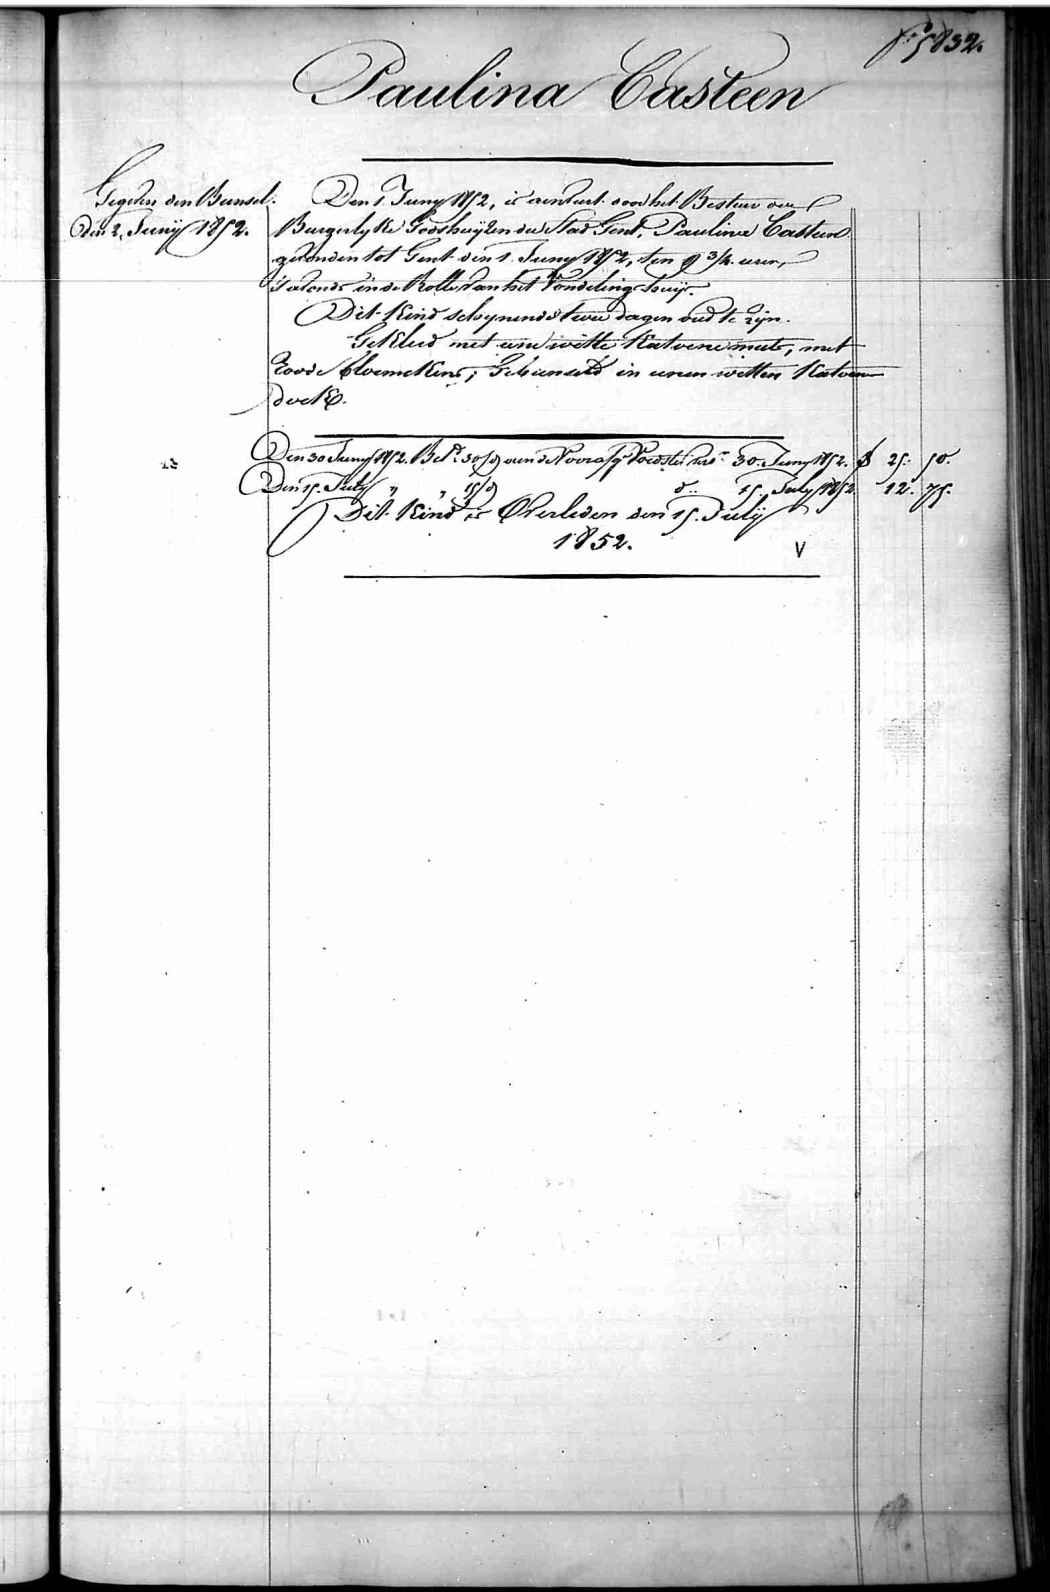 f° 5832.
Paulina Casteen
Gegeven den Bunsel.
Den 2, Junij 1852.
Den 1 Juny 1852, is aenveert door het Bestuer der
Burgerlyke Godshuyzen der Stad Gent, Paulina Casteen
gevonden tot Gent den 1 Juny 1852, ten 9 3/4 uren,
's avonds in de Rolle van het Vondelinghuijs.
Dit Kind schynende twee dagen oud te zijn.
Gekleed met eene witte Katoene muts, met
Roode bloemekens; Gebunseld in eenen witten Katoenen
doek.
Den 30 Juny 1852. Bet.d 30/d aen de Voorz/ge Voedster 30 Juny 1852. 25: 50.
Den 15. July " " 15/d d.. 15 July 1852 12. 75.
Dit Kind is Overleden den 15. Julij
1852. V